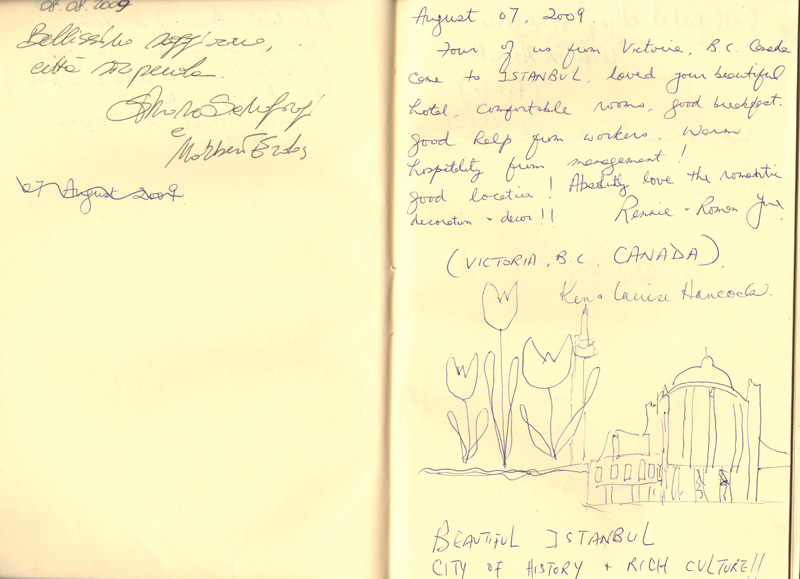 08.08.2009
Bellissimo soggiorno,
città stupenda.
e
07 August 2009
August 07, 2009.
Four of us from Victoria, B.C. Canada
came to ISTANBUL. loved your beautiful
hotel, comfortable rooms, good breakfast.
good help from workers. Warm
hospitality from management!
good location! Absolutly love the romantic
decoration + decor!! Rennie + Roman
(VICTORIA, B.C. CANADA).
Ken + Louise Hancock.
BEAUTIFUL ISTANBUL
CITY OF HISTORY + RICH CULTURE!!